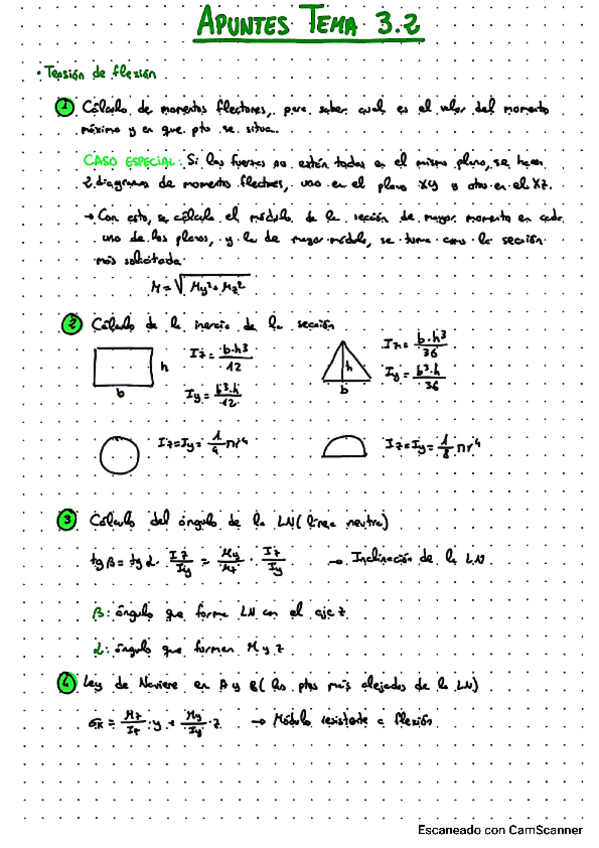 APUNTES TEMA 3.2
• Tensión de flexión
1 Cálculo de momentos flectores, para saber cual es el valor del momento
máximo y en que pto se situa.
CASO ESPECIAL: Si las fuerzas no están todas en el mismo plano, se hacen
2 diagramas de momentos flectores, uno en el plano XY y otro en el XZ.
→ Con esto, se cálcula el módulo de la sección de mayor momento en cada
uno de los planos, y la de mayor módulo, se toma como la sección
más solicitada.
M = √(My² + Mz²)
2 Cálculo de la inercia de la sección
h
b
Iz = b·h³/12
Iy = b³·h/12
h
b
b·h³/36
Iy = b³·h/36
Iz=Iy= 1/4 πr⁴
Iz=Iy= 1/8 πr⁴
3 Cálculo del ángulo de la LN (línea neutra)
tg β = tg α · Iz/Iy = My/Mz · Iz/Iy → Inclinación de la LN
β: ángulo que forma LN con el eje z
α: ángulo que forman M y z
4 Ley de Naviere en A y B (los ptos más alejados de la LN)
y + My/Iy · z → Módulo resistente a flexión
Escaneado con CamScanner